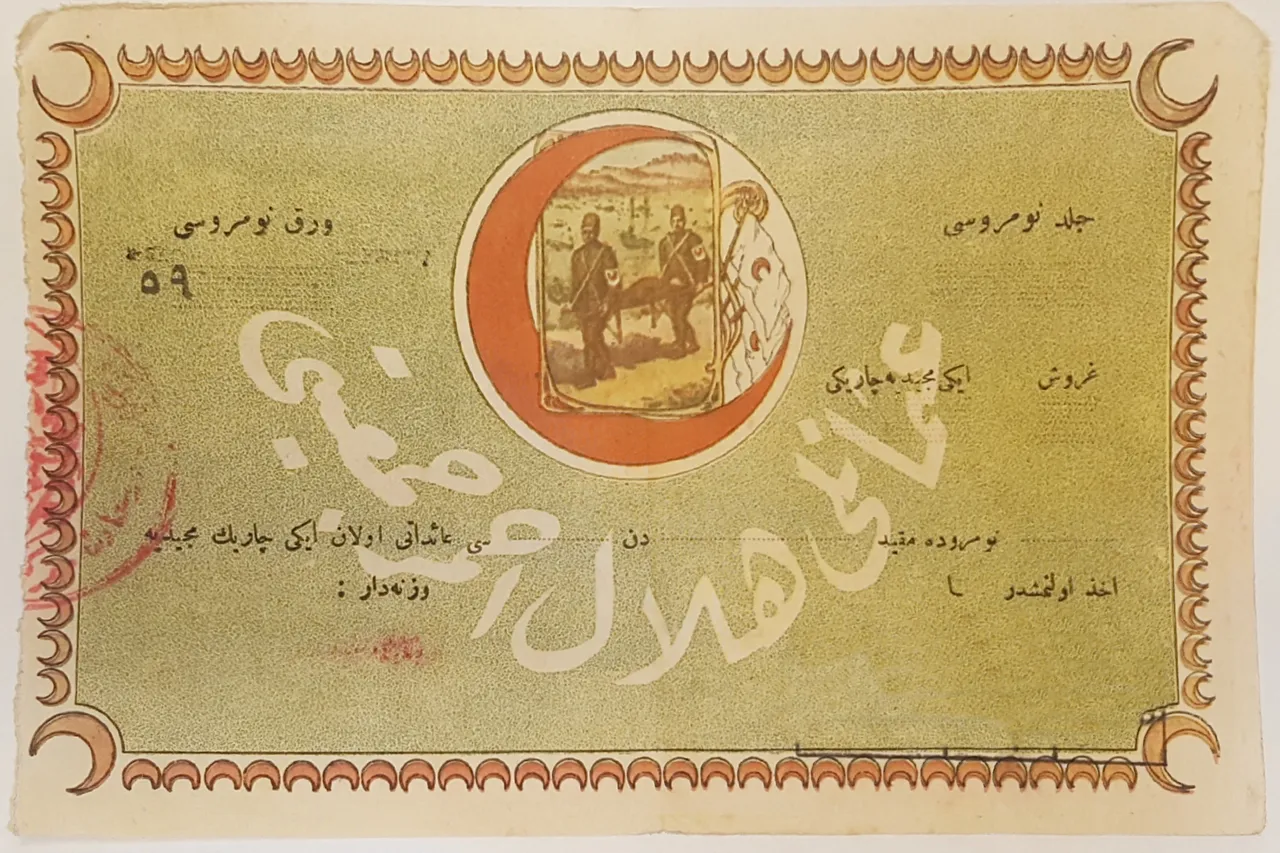 جلد نومروسی
ورق نومروسی
٥٩
غروش ایكی مجیدیه چاریكی
عثمانلی هلال احمر جمعیتی
نومروده مقید دن سی عائداتی اولان ایكی چاریك مجیدیه
اخذ اولنمشدر
وزنه‌دار :